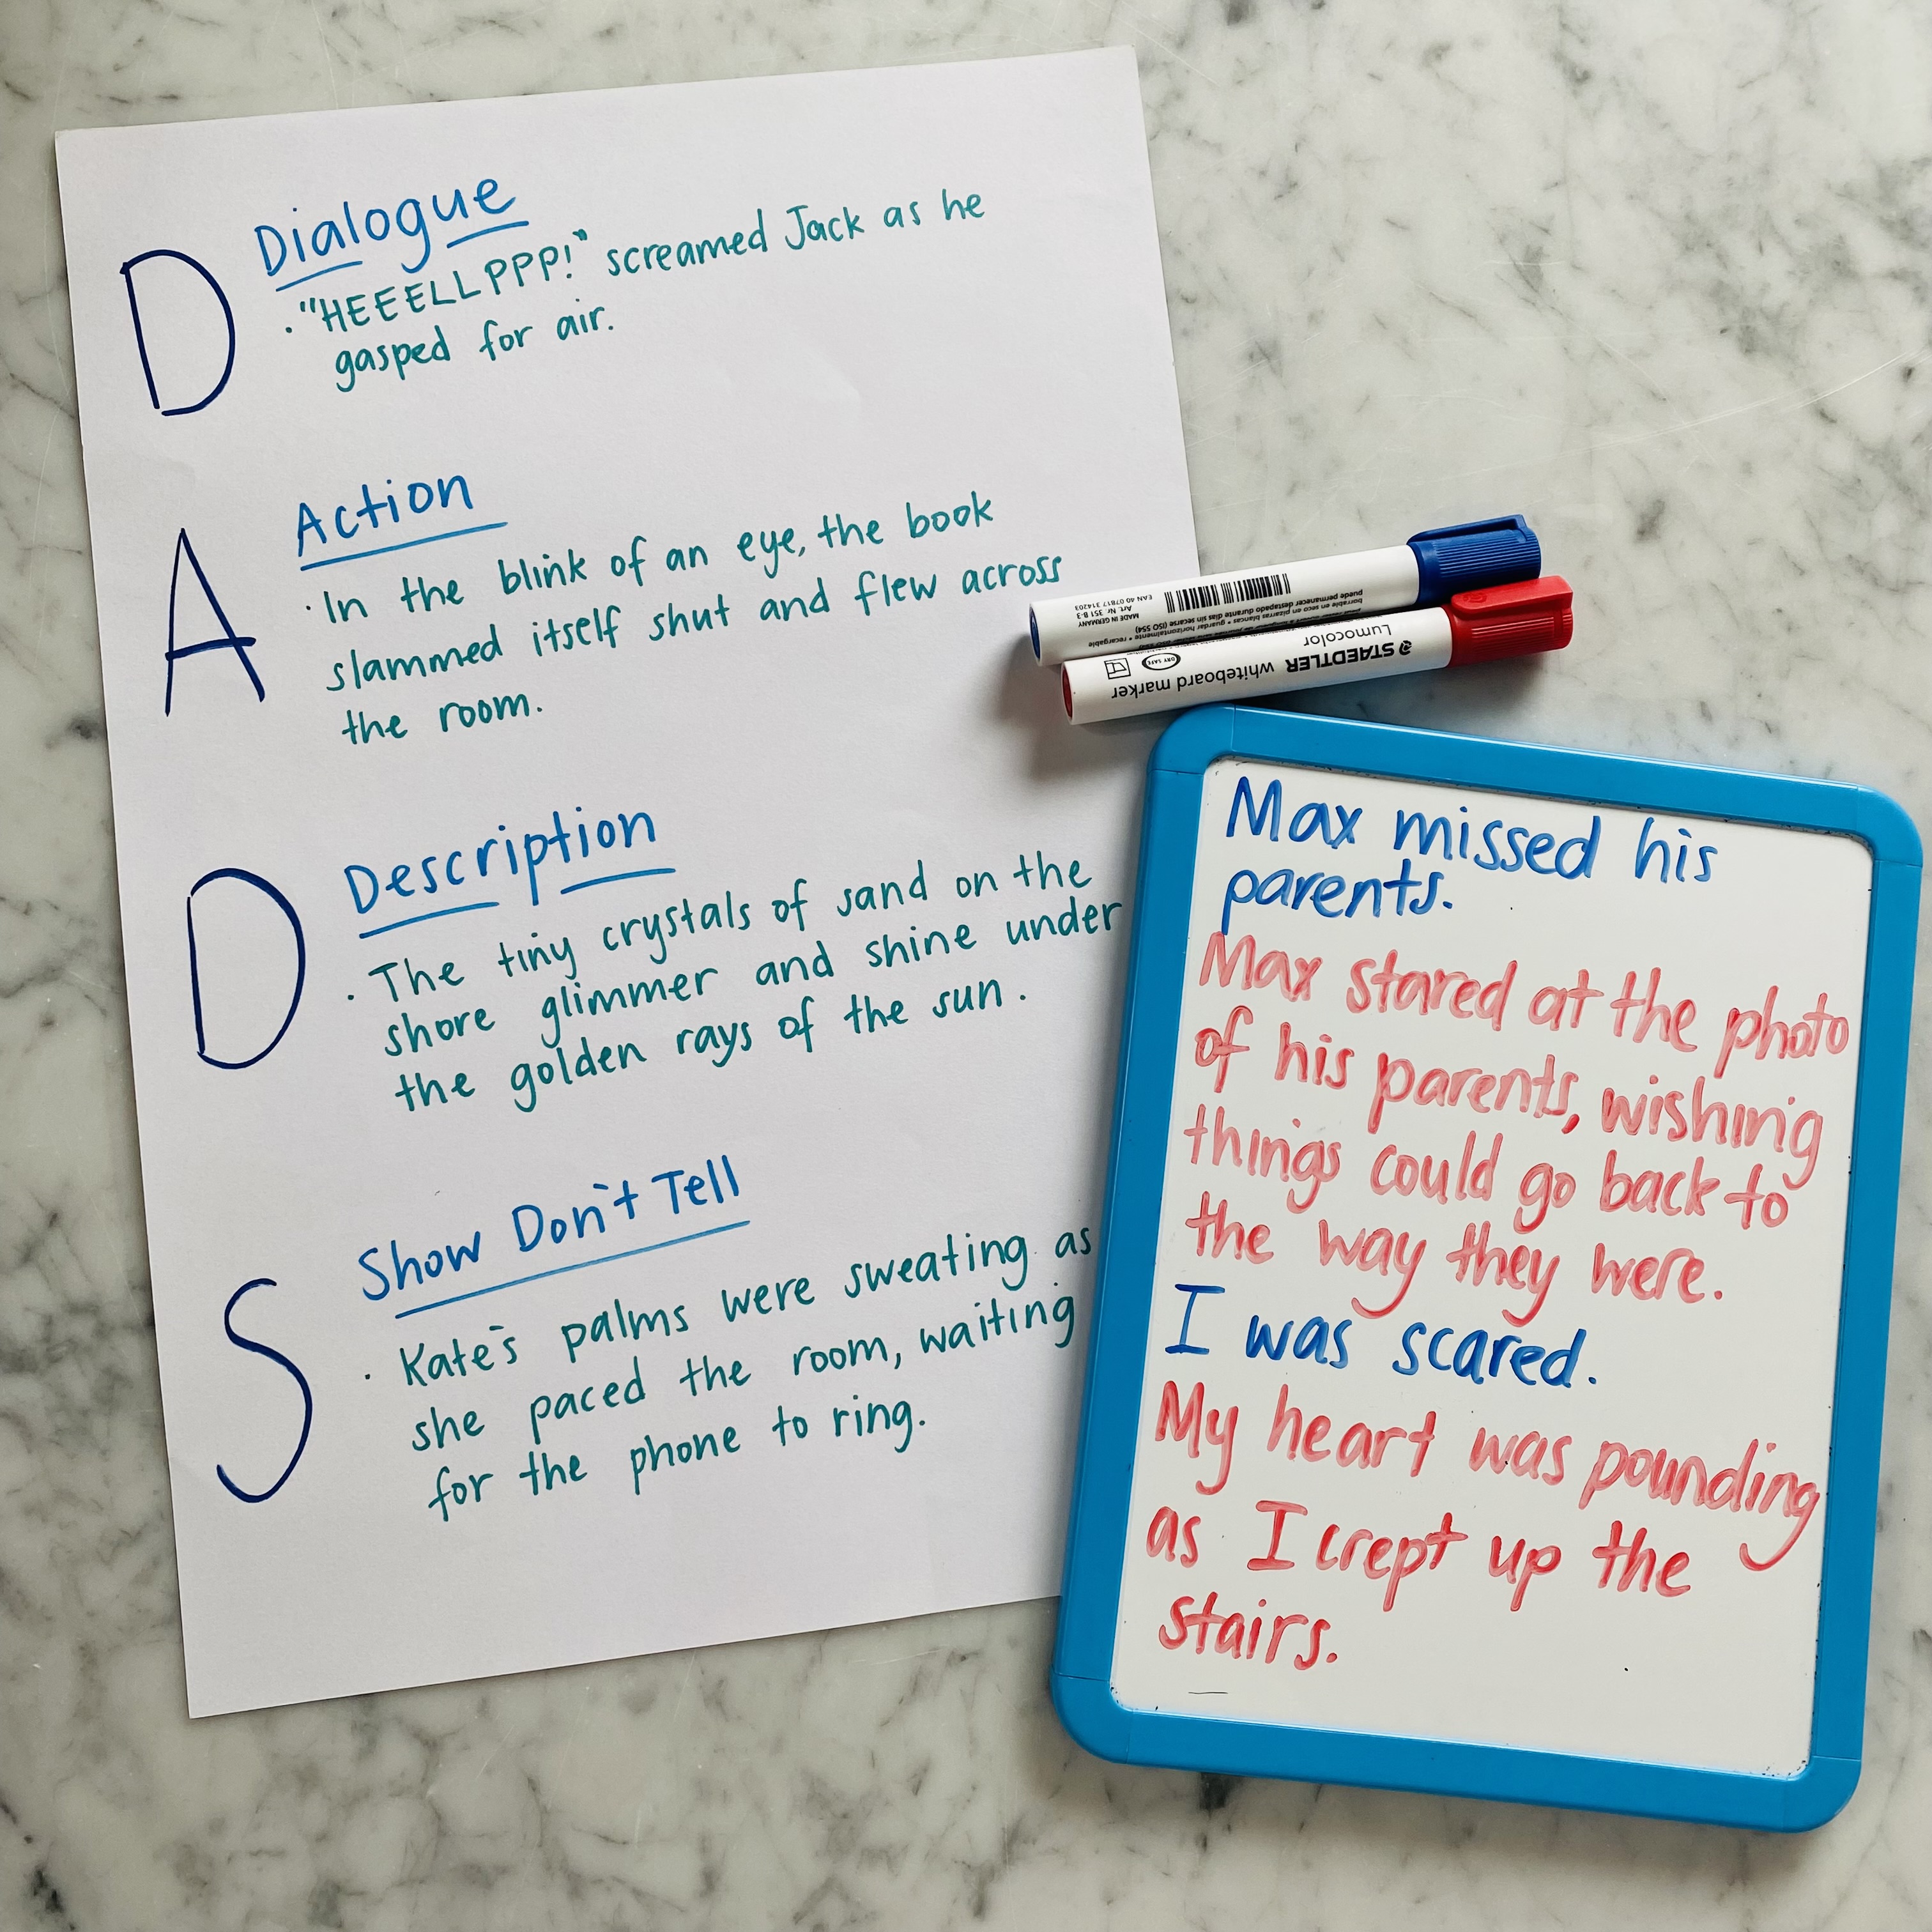 D
Dialogue
· "HEEELLPPP!" screamed Jack as he
gasped for air.
A
Action
· In the blink of an eye, the book
slammed itself shut and flew across
the room.
D
Description
· The tiny crystals of sand on the
shore glimmer and shine under
the golden rays of the sun.
S
Show Don't Tell
· Kate's palms were sweating as
she paced the room, waiting
for the phone to ring.
EAN 40 07817 314203
Art. Nr. 351 B-3
MADE IN GERMANY
puede permanecer destapado durante días sin secarse (ISO 554)
STAEDTLER whiteboard marker
Lumocolor
DRY SAFE
Max missed his
parents.
Max stared at the photo
of his parents, wishing
things could go back to
the way they were.
I was scared.
My heart was pounding
as I crept up the
stairs.